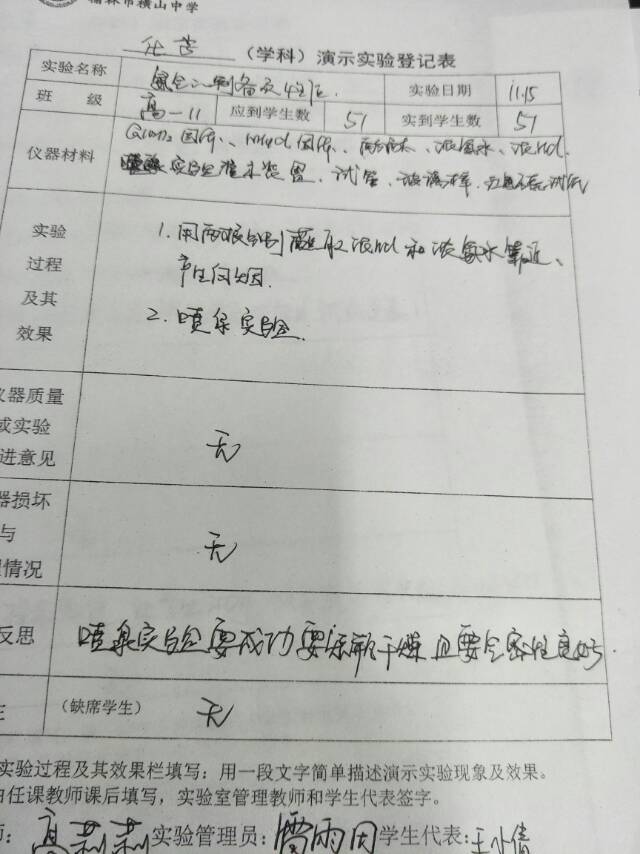 榆林市横山中学
化学（学科）演示实验登记表
实验名称 氨气的制备及性质 实验日期 11.15
班 级 高一11 应到学生数 57 实到学生数 57
仪器材料 固体、NH4Cl固体、浓氨水、浓HCl
实验装置、试管、玻璃棒、试纸
实验过程及其效果
1.用两根分别蘸取浓HCl和浓氨水靠近、
产生白烟.
2.喷泉实验.
仪器质量
或实验
进意见 无
器损坏
与
情况 无
反思 喷泉实验要成功要干燥且要气密性良好.
（缺席学生） 无
实验过程及其效果栏填写：用一段文字简单描述演示实验现象及效果。
由任课教师课后填写，实验室管理教师和学生代表签字。
师：高莉莉 实验管理员：雷雨田 学生代表：王倩